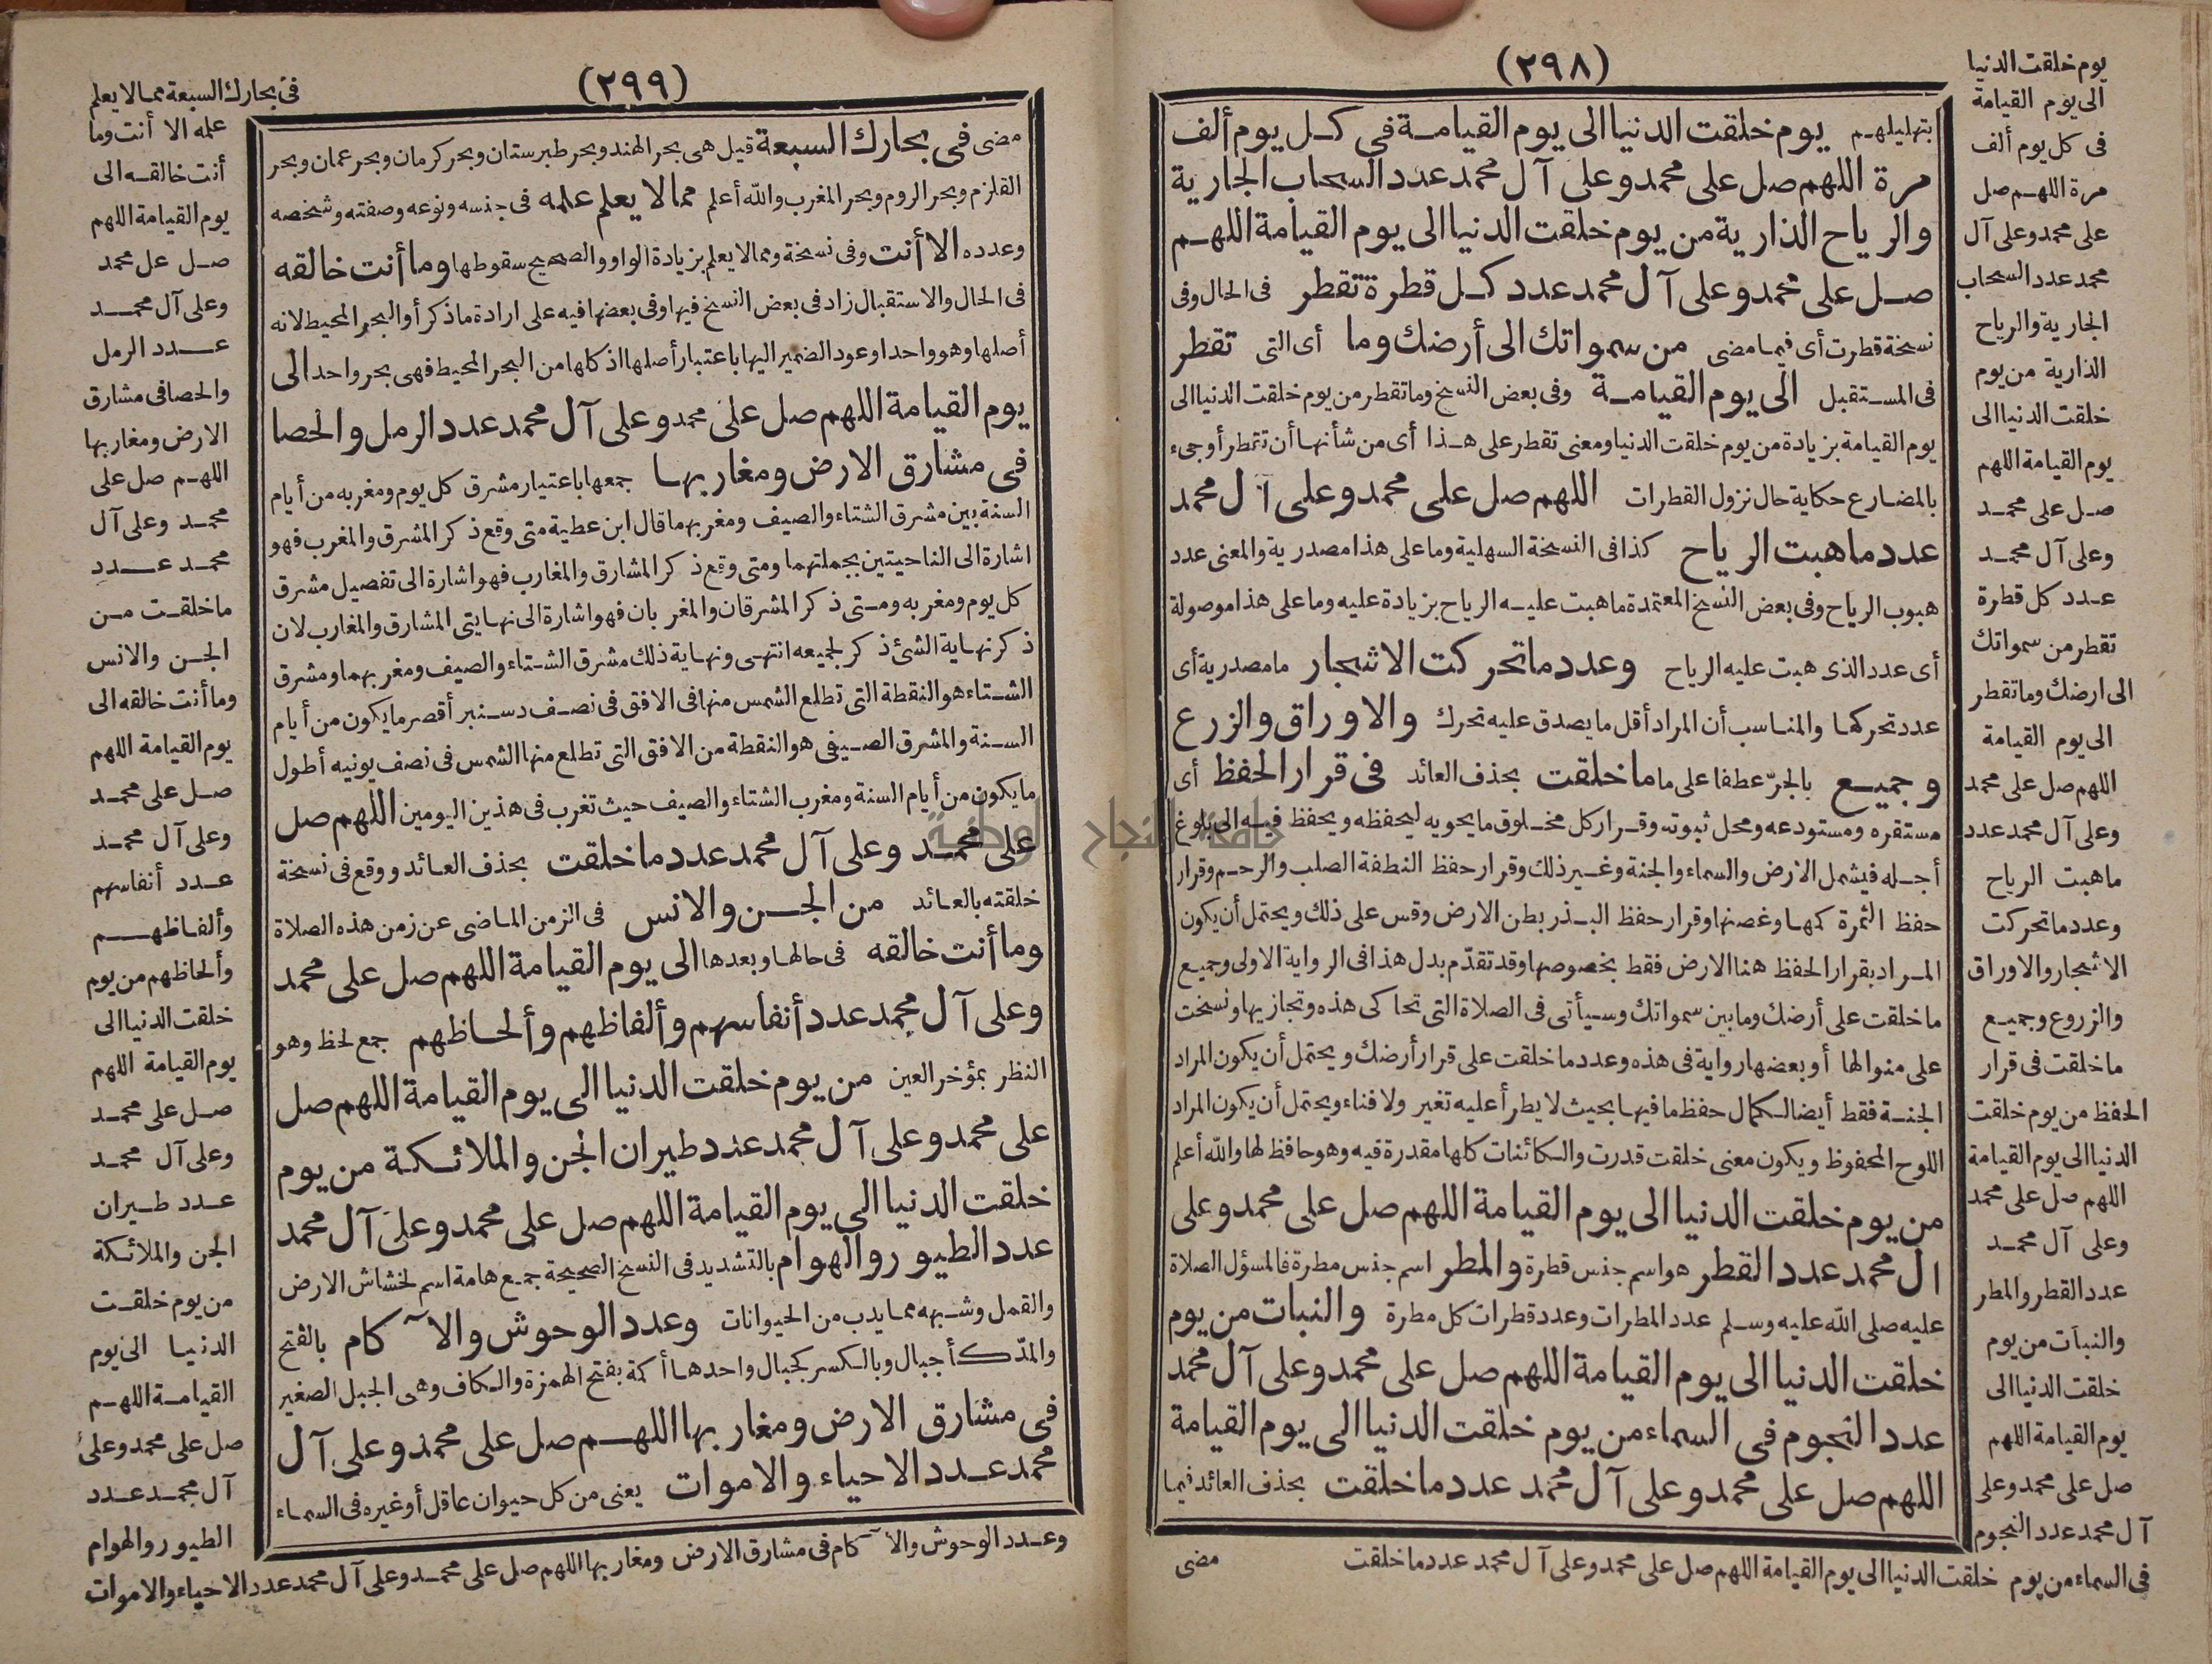 (٢٩٨)
بتهليلهم يوم خلقت الدنيا الى يوم القيامة فى كل يوم ألف
مرة اللهم صل على محمد وعلى آل محمد عدد السحاب الجارية
والرياح الذارية من يوم خلقت الدنيا الى يوم القيامة اللهم
صل على محمد وعلى آل محمد عدد كل قطرة تقطر فى الحال وفى
نسخة قطرت أى فيما مضى من سمواتك الى أرضك وما أى التى تقطر
فى المستقبل الى يوم القيامة وفى بعض النسخ وما تقطر من يوم خلقت الدنيا الى
يوم القيامة بزيادة من يوم خلقت الدنيا ومعنى تقطر على هذا أى من شأنها أن تتمطر أو جىء
بالمضارع حكاية حال نزول القطرات اللهم صل على محمد وعلى آل محمد
عدد ما هبت الرياح كذا فى النسخة السهلية وما على هذا مصدرية والمعنى عدد
هبوب الرياح وفى بعض النسخ المعتمدة ما هبت عليه الرياح بزيادة عليه وما على هذا موصولة
أى عدد الذى هبت عليه الرياح وعدد ما تحركت الاشجار ما مصدرية أى
عدد تحركها والمناسب أن المراد أقل ما يصدق عليه تحرك والاوراق والزرع
وجميع بالجرّ عطفا على ما ما خلقت بحذف العائد فى قرار الحفظ أى
مستقره ومستودعه ومحل ثبوته وقرار كل مخلوق ما يحويه ليحفظه ويحفظ فيه الى بلوغ
أجله فيشمل الارض والسماء والجنة وغير ذلك وقرار حفظ النطفة الصلب والرحم وقرار
حفظ الثمرة كمها وغصنها وقرار حفظ البذر بطن الارض وقس على ذلك ويحتمل أن يكون
المراد بقرار الحفظ هنا الارض فقط بخصوصها وقد تقدّم بدل هذا فى الرواية الاولى وجميع
ما خلقت على أرضك وما بين سمواتك وسيأتى فى الصلاة التى تحاكى هذه وتجازيها ونسخت
على منوالها أو بعضها رواية فى هذه وعدد ما خلقت على قرار أرضك ويحتمل أن يكون المراد
الجنة فقط أيضا لكمال حفظ ما فيها بحيث لا يطرأ عليه تغير ولا فناء ويحتمل أن يكون المراد
اللوح المحفوظ ويكون معنى خلقت قدرت والكائنات كلها مقدرة فيه وهو حافظ لها والله أعلم
من يوم خلقت الدنيا الى يوم القيامة اللهم صل على محمد وعلى
ال محمد عدد القطر هو اسم جنس قطرة والمطر اسم جنس مطرة فالمسؤل الصلاة
عليه صلى الله عليه وسلم عدد المطرات وعدد قطرات كل مطرة والنبات من يوم
خلقت الدنيا الى يوم القيامة اللهم صل على محمد وعلى آل محمد
عدد النجوم فى السماء من يوم خلقت الدنيا الى يوم القيامة
اللهم صل على محمد وعلى آل محمد عدد ما خلقت بحذف العائد فيما
يوم خلقت الدنيا
الى يوم القيامة
فى كل يوم ألف
مرة اللهم صل
على محمد وعلى آل
محمد عدد السحاب
الجارية والرياح
الذارية من يوم
خلقت الدنيا الى
يوم القيامة اللهم
صل على محمد
وعلى آل محمد
عدد كل قطرة
تقطر من سمواتك
الى ارضك وما تقطر
الى يوم القيامة
اللهم صل على محمد
وعلى آل محمد عدد
ما هبت الرياح
وعدد ما تحركت
الاشجار والاوراق
والزروع وجميع
ما خلقت فى قرار
الحفظ من يوم خلقت
الدنيا الى يوم القيامة
اللهم صل على محمد
وعلى آل محمد
عدد القطر والمطر
والنبات من يوم
خلقت الدنيا الى
يوم القيامة اللهم
صل على محمد وعلى
آل محمد عدد النجوم
فى السماء من يوم خلقت الدنيا الى يوم القيامة اللهم صل على محمد وعلى آل محمد عدد ما خلقت
مضى
(٢٩٩)
مضى فى بحارك السبعة قيل هى بحر الهند وبحر طبرستان وبحر كرمان وبحر عمان وبحر
القلزم وبحر الروم وبحر المغرب والله أعلم مما لا يعلم علمه فى جنسه ونوعه وصفته وشخصه
وعدده الا أنت وفى نسخة ومما لا يعلم بزيادة الواو والصحيح سقوطها وما أنت خالقه
فى الحال والاستقبال زاد فى بعض النسخ فيها وفى بعضها فيه على ارادة ما ذكر أو البحر المحيط لانه
أصلها وهو واحد او عود الضمير اليها باعتبار أصلها اذ كلها من البحر المحيط فهى بحر واحد الى
يوم القيامة اللهم صل على محمد وعلى آل محمد عدد الرمل والحصا
فى مشارق الارض ومغاربها جمعها باعتبار مشرق كل يوم ومغربه من أيام
السنة بين مشرق الشتاء والصيف ومغربهما قال ابن عطية متى وقع ذكر المشرق والمغرب فهو
اشارة الى الناحيتين بجملتهما ومتى وقع ذكر المشارق والمغارب فهو اشارة الى تفصيل مشرق
كل يوم ومغربه ومتى ذكر المشرقان والمغربان فهو اشارة الى نهايتى المشارق والمغارب لان
ذكر نهاية الشئ ذكر لجميعه انتهى ونهاية ذلك مشرق الشتاء والصيف ومغربهما ومشرق
الشتاء هو النقطة التى تطلع الشمس منها فى الافق فى نصف دسنبر أقصر ما يكون من أيام
السنة والمشرق الصيفى هو النقطة من الافق التى تطلع منها الشمس فى نصف يونيه أطول
ما يكون من أيام السنة ومغرب الشتاء والصيف حيث تغرب فى هذين اليومين اللهم صل
على محمد وعلى آل محمد عدد ما خلقت بحذف العائد ووقع فى نسخة
خلقته بالعائد من الجن والانس فى الزمن الماضى عن زمن هذه الصلاة
وما أنت خالقه فى حالها وبعدها الى يوم القيامة اللهم صل على محمد
وعلى آل محمد عدد أنفاسهم وألفاظهم وألحاظهم جمع لحظ وهو
النظر بمؤخر العين من يوم خلقت الدنيا الى يوم القيامة اللهم صل
على محمد وعلى آل محمد عدد طيران الجن والملائكة من يوم
خلقت الدنيا الى يوم القيامة اللهم صل على محمد وعلى آل محمد
عدد الطيور والهوام بالتشديد فى النسخ الصحيحة جمع هامة اسم لخشاش الارض
والقمل وشبهه مما يدب من الحيوانات وعدد الوحوش والآكام بالفتح
والمدّ كأجبال وبالكسر كجبال واحدها أكمة بفتح الهمزة والكاف وهى الجبل الصغير
فى مشارق الارض ومغاربها اللهم صل على محمد وعلى آل
محمد عدد الاحياء والاموات يعنى من كل حيوان عاقل أو غيره فى السماء
فى بحارك السبعة مما لا يعلم
علمه الا أنت وما
أنت خالقه الى
يوم القيامة اللهم
صل عل محمد
وعلى آل محمد
عدد الرمل
والحصا فى مشارق
الارض ومغاربها
اللهم صل على
محمد وعلى آل
محمد عدد
ما خلقت من
الجن والانس
وما أنت خالقه الى
يوم القيامة اللهم
صل على محمد
وعلى آل محمد
عدد أنفاسهم
وألفاظهم
وألحاظهم من يوم
خلقت الدنيا الى
يوم القيامة اللهم
صل على محمد
وعلى آل محمد
عدد طيران
الجن والملائكة
من يوم خلقت
الدنيا الى يوم
القيامة اللهم
صل على محمد وعلى
آل محمد عدد
الطيور والهوام
وعدد الوحوش والآكام فى مشارق الارض ومغاربها اللهم صل على محمد وعلى آل محمد عدد الاحياء والاموات
جامعة النجاح الوطنية